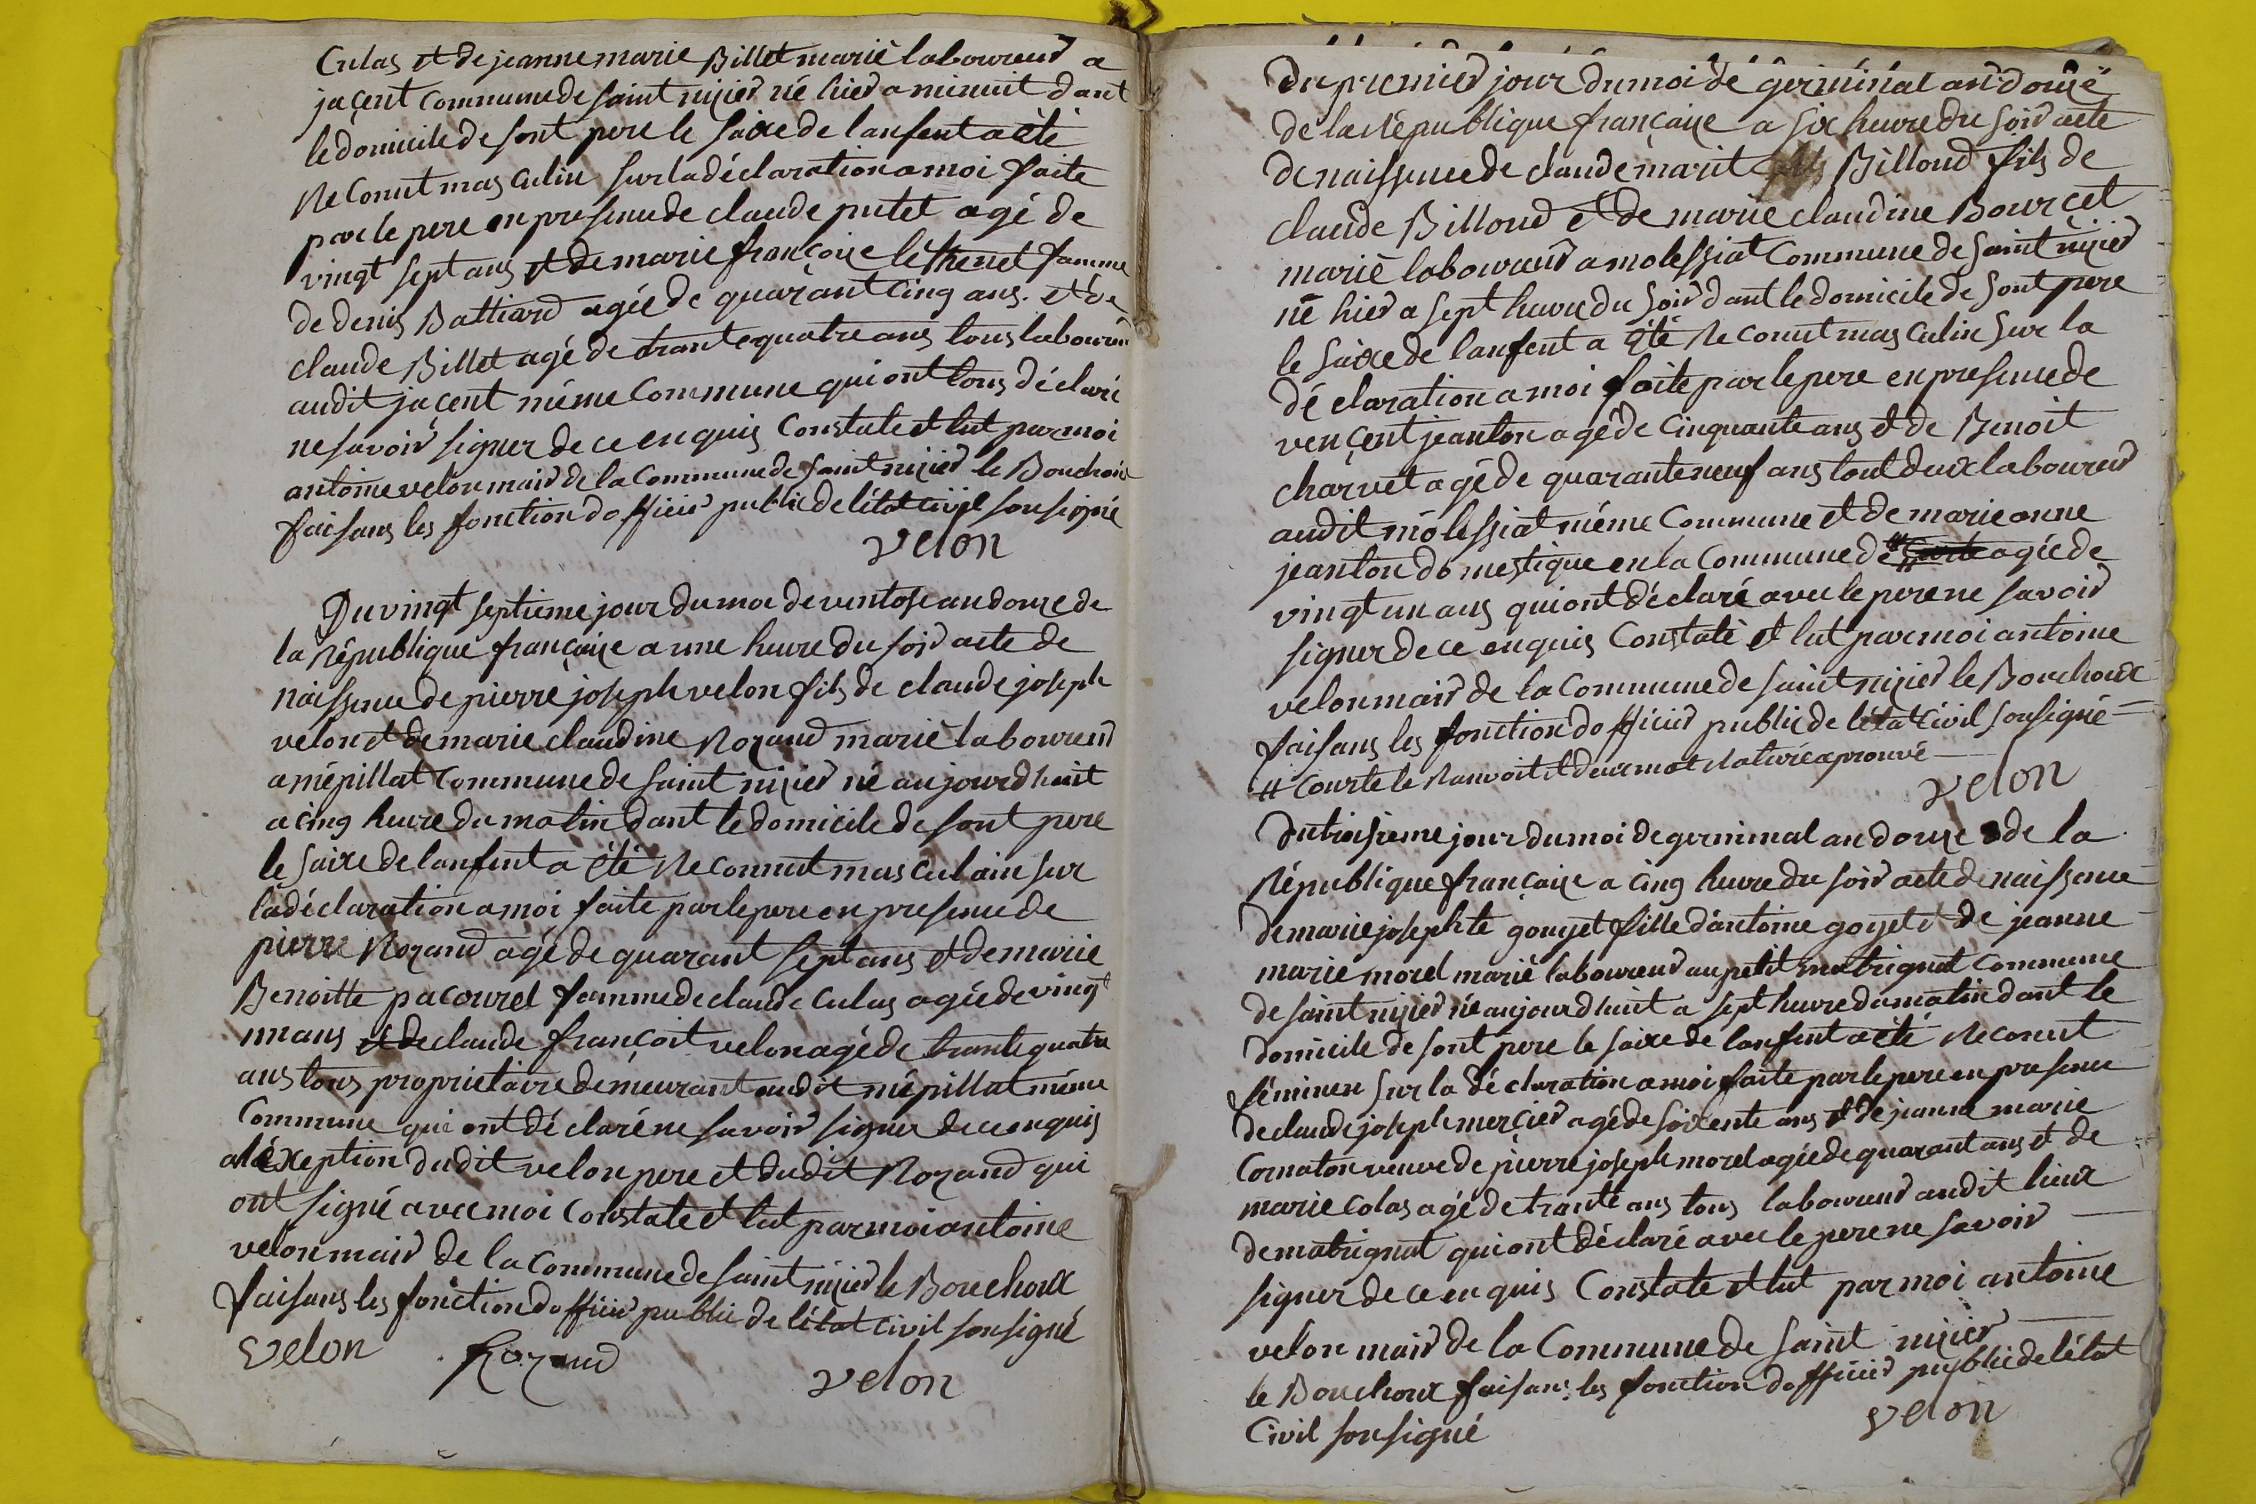 Culas et de jeanne marie Billet marié laboureur a
jacent Commune de saint nizier né hier a minuit dant
le domicile de sont pere le saixe de lanfent a été
Reconut masculin sur la déclaration a moi faite
par le pere en presence de claude putet agé de
vingt sept ans et de marie françoise léthenet famme
de denis Battiard agée de quarant cinq ans. et de
claude Billet agé de trante quatre ans tous laboureur
audit jacent méme Commune qui ont tous déclaré
ne savoir signer de ce enquis Constate et lut par moi
antoine velon mair de la Commune de saint nizier le Bouchoux
faisans les fonction dofficier public de létat civil sousigné
velon
Du vingt septieme jour du moi de ventose an douze de
la République française a une heure du soir acte de
naissence de pierre joseph velon fils de claude joseph
velon et de marie claudine Rozand marié laboureur
a mépillat Commune de saint nizier né aujourdhuit
a cinq heure du matin dant le domicile de sont pere
le saixe de lanfent a été Reconnut masculain sur
la déclaration a moi faite par le pere en presence de
pierre Rozand agé de quarant sept ans et de mariie
Benoitte pacouret famme de claude Culas agée de vingt
un ans et de claude françoit velon agé de trante quatre
ans tous proprietaire demeurant audit mépillat méme
Commune qui ont déclaré ne savoir signer de ce enquis
aléxeption dudit velon pere et dudit Rozand qui
ont signé avec moi Constate et lut par moi antoine
velon mair de la Commune de saint nizier le Bouchoux
faisans les fonction dofficier public de létat civil sousigné
velon Rozand
velon
Du premier jour du moi de gérminal an douze
de la République française a six heure du soir acte
de naissence de claude marit Billoud fils de
claude Billoud et de marie claudine Bourcet
marié laboureur a molessiat Commune de saint nizier
né hier a sept heure du soir dant le domicile de sont pere
le saixe de lanfent a été Reconut masculin sur la
déclaration a moi faite par le pere en presence de
vencent jeanton agé de Cinquante ans et de Benoit
charvet agé de quarante neuf ans tout deux laboureur
audit molessiat méme Commune et de marie anne
jeanton domestique en la Commune de # agée de
vingt un ans qui ont déclaré avec le pere ne savoir
signer de ce enquis Constaté et lut par moi antoine
velon mair de la Commune de saint nizier le Bouchoux
faisans les fonction dofficier public de létat Civil sousigné
# Courte le Ranvoit et deux mot Raturé aprouvé
velon
Du troisieme jour du moi de germinal an douze de la
République française a cinq heure du soir acte de naissence
de marie josephte gouyet fille dantoine goyet et de jeanne
marie morel marié laboureur au petit matrignat Commune
de saint nizier né aujourdhuit a sept heure du matin dant le
domicile de sont pere le saixe de lanfent a été Reconut
féminen sur la déclaration a moi faite par le pere en presence
de claude joseph mercier agé de soixente ans et de jeanne marie
Cornaton veuve de pierre joseph morel agée de quarant ans et de
marie Colas agé de trante ans tous laboureur audit lieux
de matrignat qui ont déclaré avec le pere ne savoir
signer de ce enquis Constate et lut par moi antoine
velon mair de la Commune de saint nizier
le Bouchoux faisans les fonction dofficier public de létat
Civil sousigné
velon